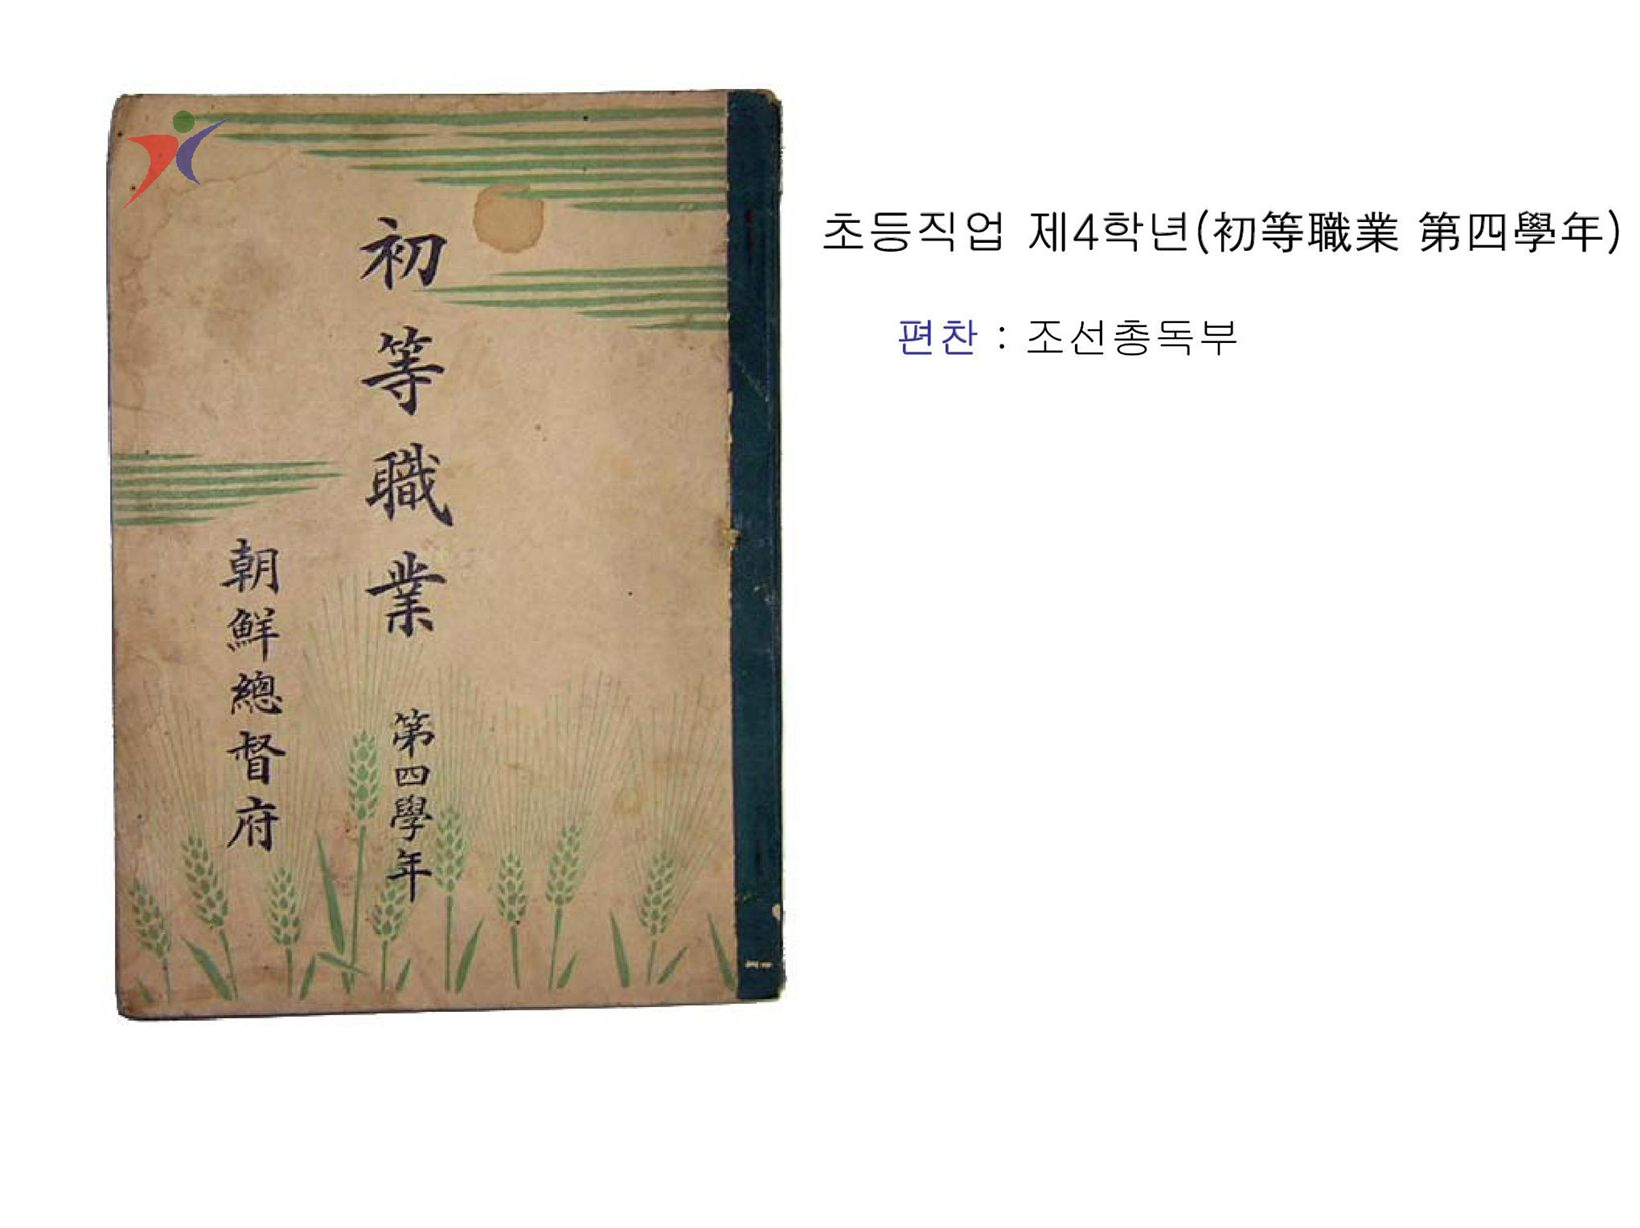 初等職業 第四學年
朝鮮總督府
초등직업 제4학년(初等職業 第四學年)
편찬 : 조선총독부